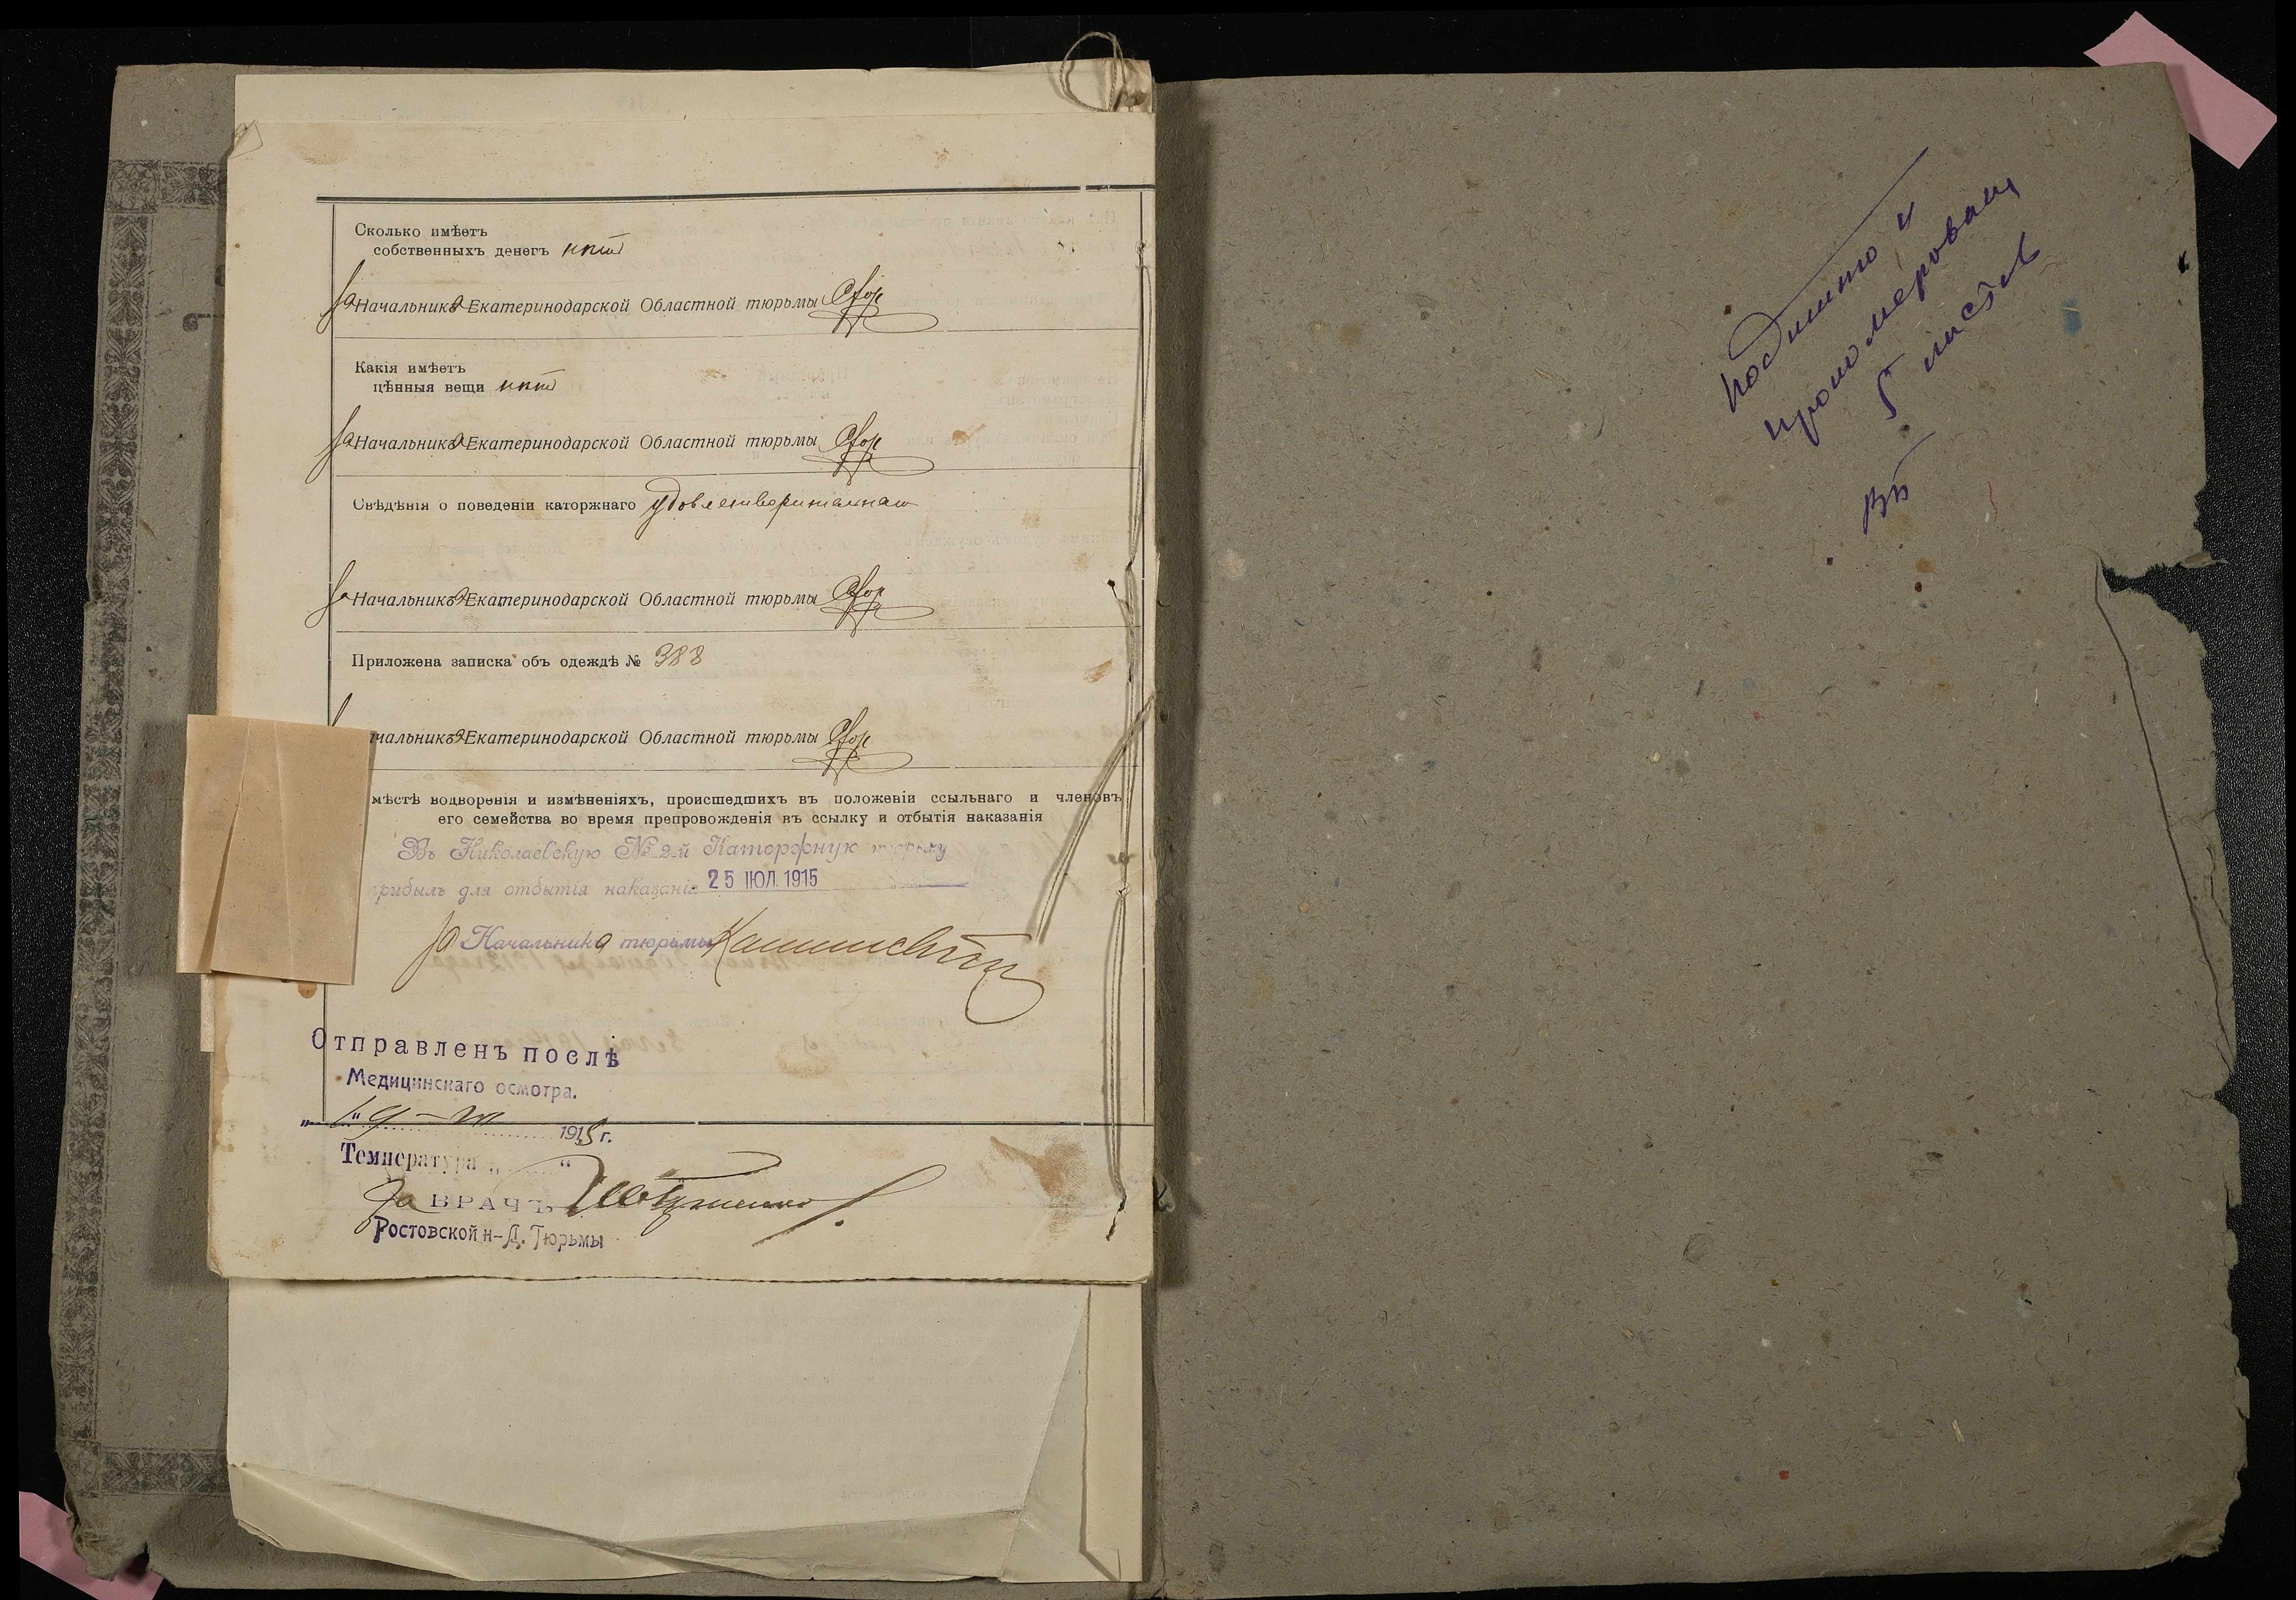 Сколько имѣетъ
собственныхъ денегъ нѣтъ
За Начальника Екатеринодарской Областной тюрьмы
Какія имѣетъ
цѣнныя вещи нѣтъ
За Начальника Екатеринодарской Областной тюрьмы
Свѣдѣнія о поведеніи каторжнаго удовлетворительнаго
За Начальника Екатеринодарской Областной тюрьмы
Приложена записка объ одеждѣ № 388
ачальника Екатеринодарской Областной тюрьмы
мѣстѣ водворенія и измѣненіяхъ, происшедшихъ въ положеніи ссыльнаго и членовъ
его семейства во время препровожденія въ ссылку и отбытія наказанія
Въ Николаевскую № 2-й Каторжную тюрьму
прибылъ для отбытія наказанія 25 ІЮЛ. 1915
За Начальника тюрьмы
Отправленъ послѣ
Медицинскаго осмотра.
1915 г.
Температура „ “
За ВРАЧЪ
Ростовской н-Д. Тюрьмы
подшито и
пронумеровано
5 листов